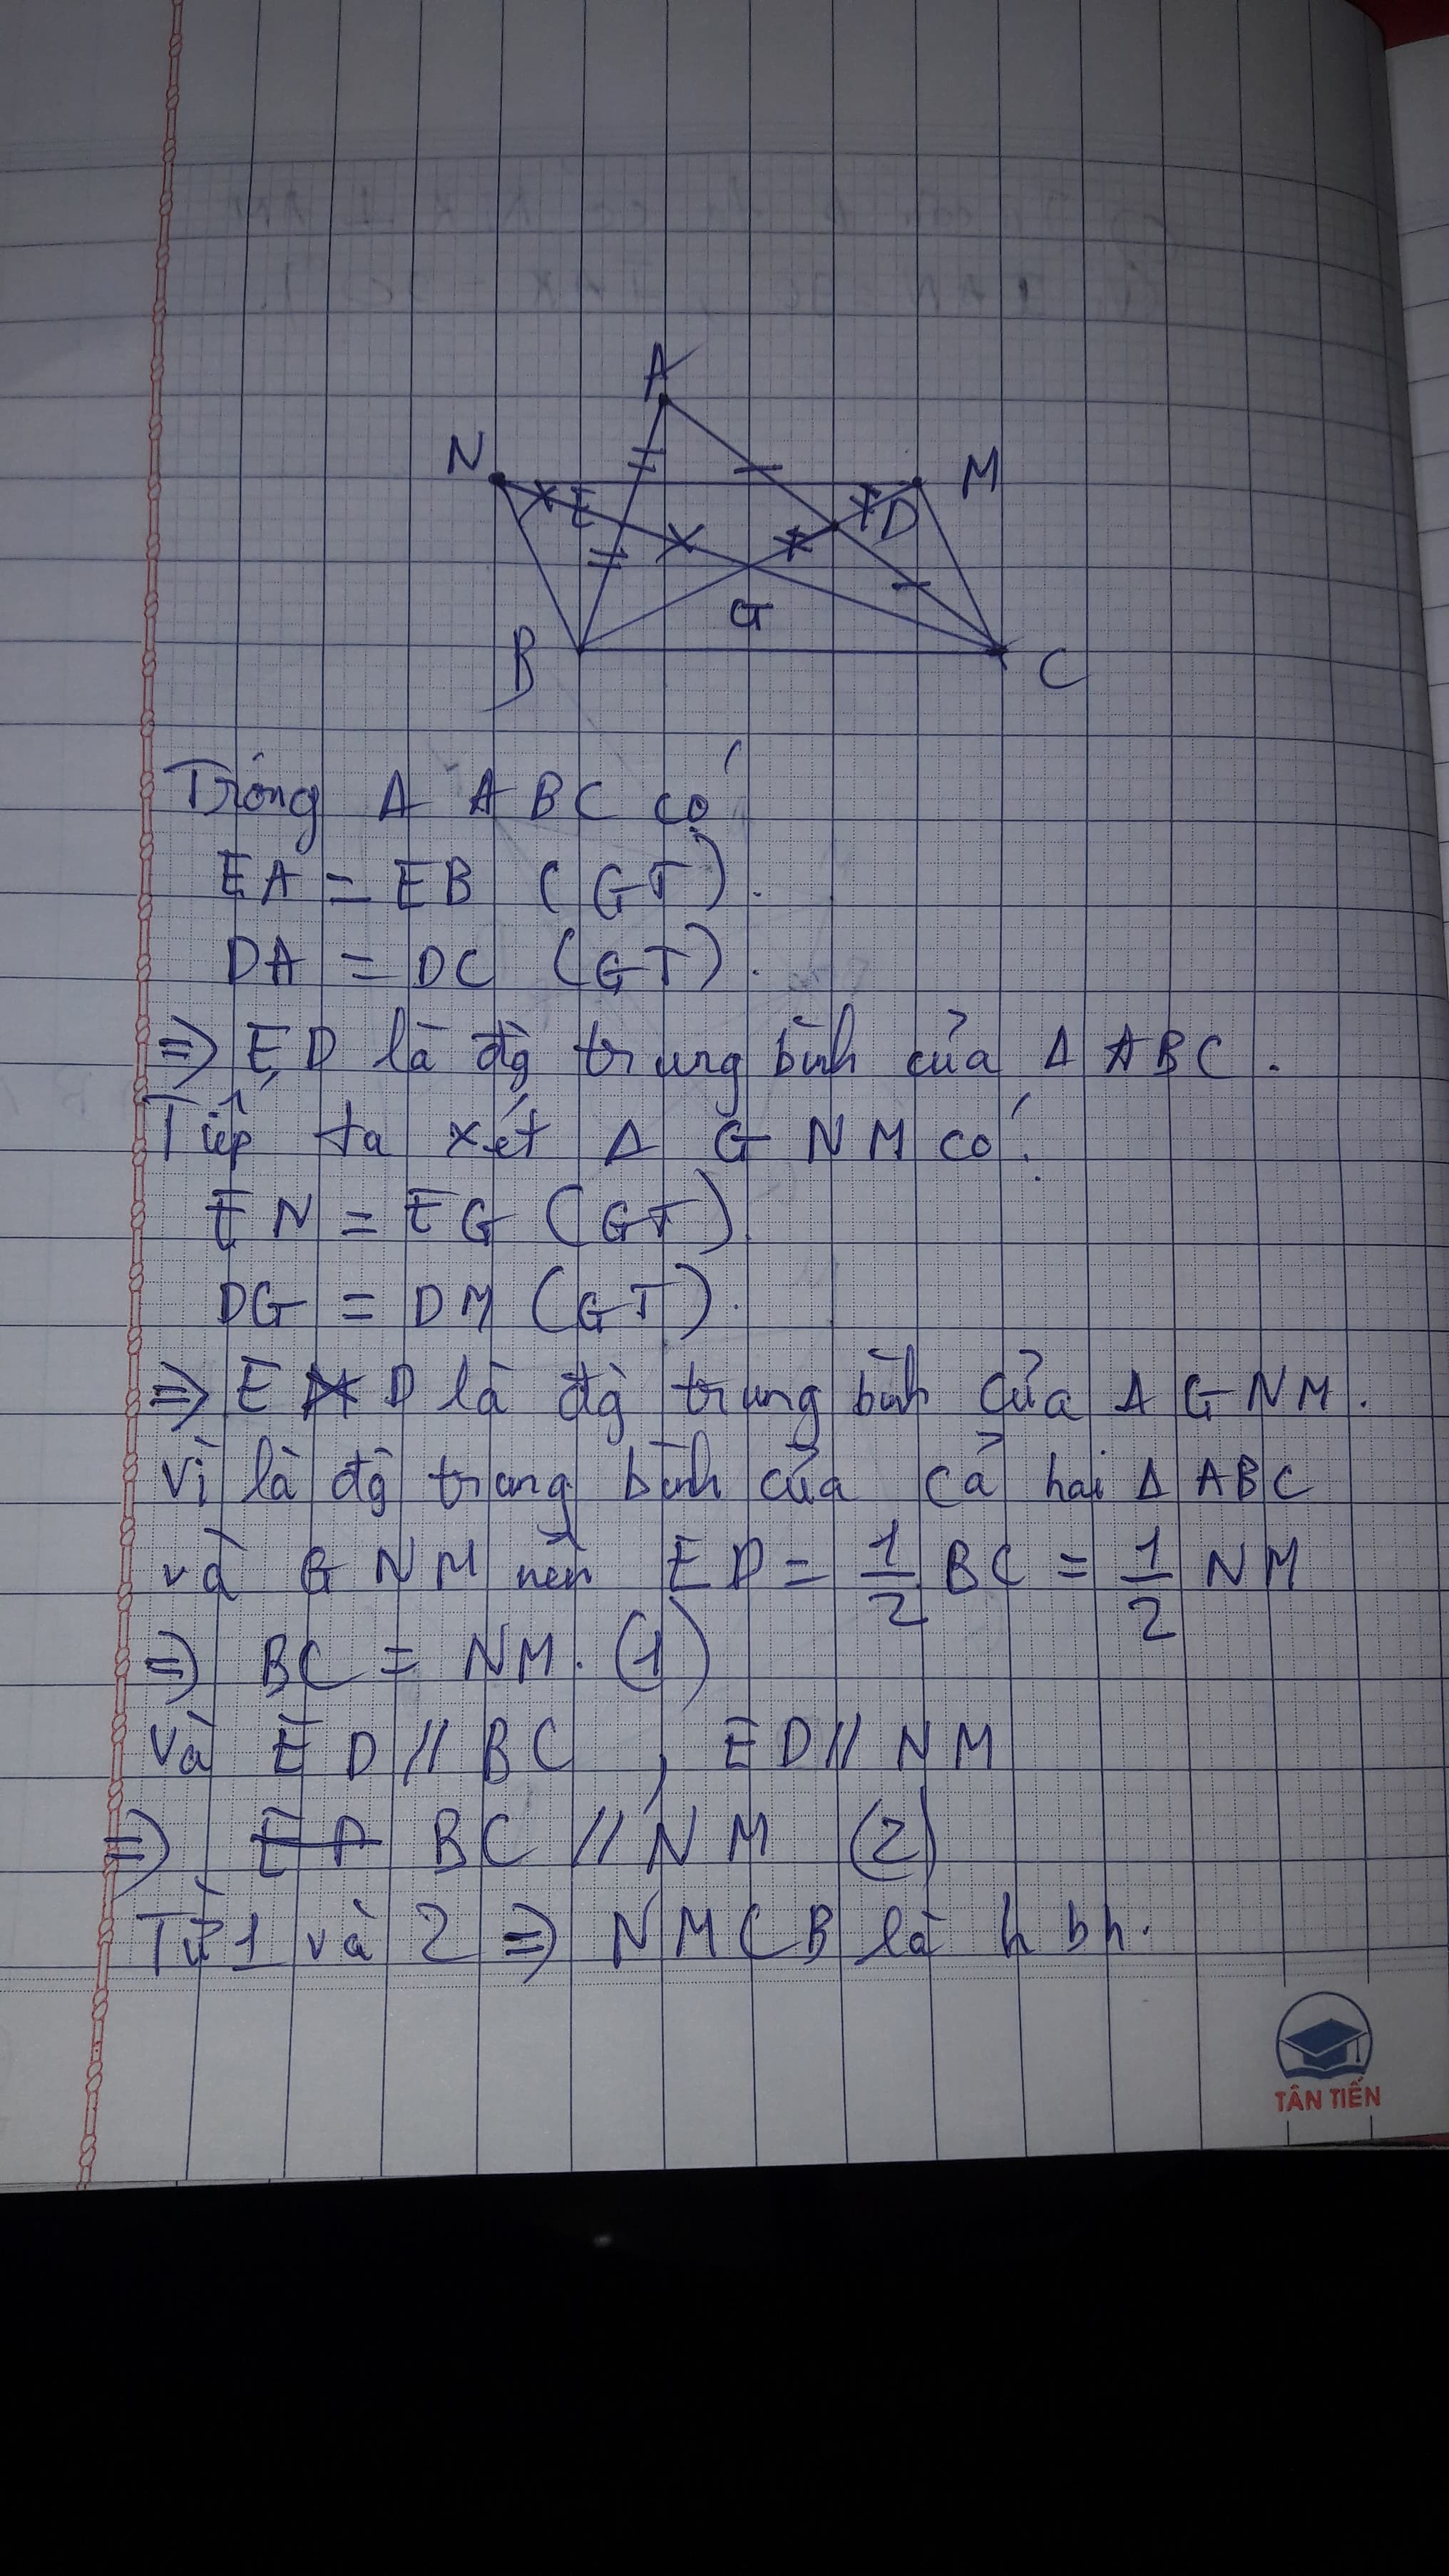 A
N
M
E
D
G
B
C
Trong Δ ABC có
EA = EB (GT).
DA = DC (GT).
=> ED là đg trung bình của Δ ABC.
Tiếp ta xét Δ GNM có:
EN = EG (GT).
DG = DM (GT).
=> E D là đg trung bình của Δ GNM.
vì là đg trung bình của cả hai Δ ABC
và GNM nên ED = 1/2 BC = 1/2 NM
=> BC = NM. (1)
Và ED // BC , ED // NM
=> BC // NM (2)
Từ 1 và 2 => NMCB là hbh.
TÂN TIẾN